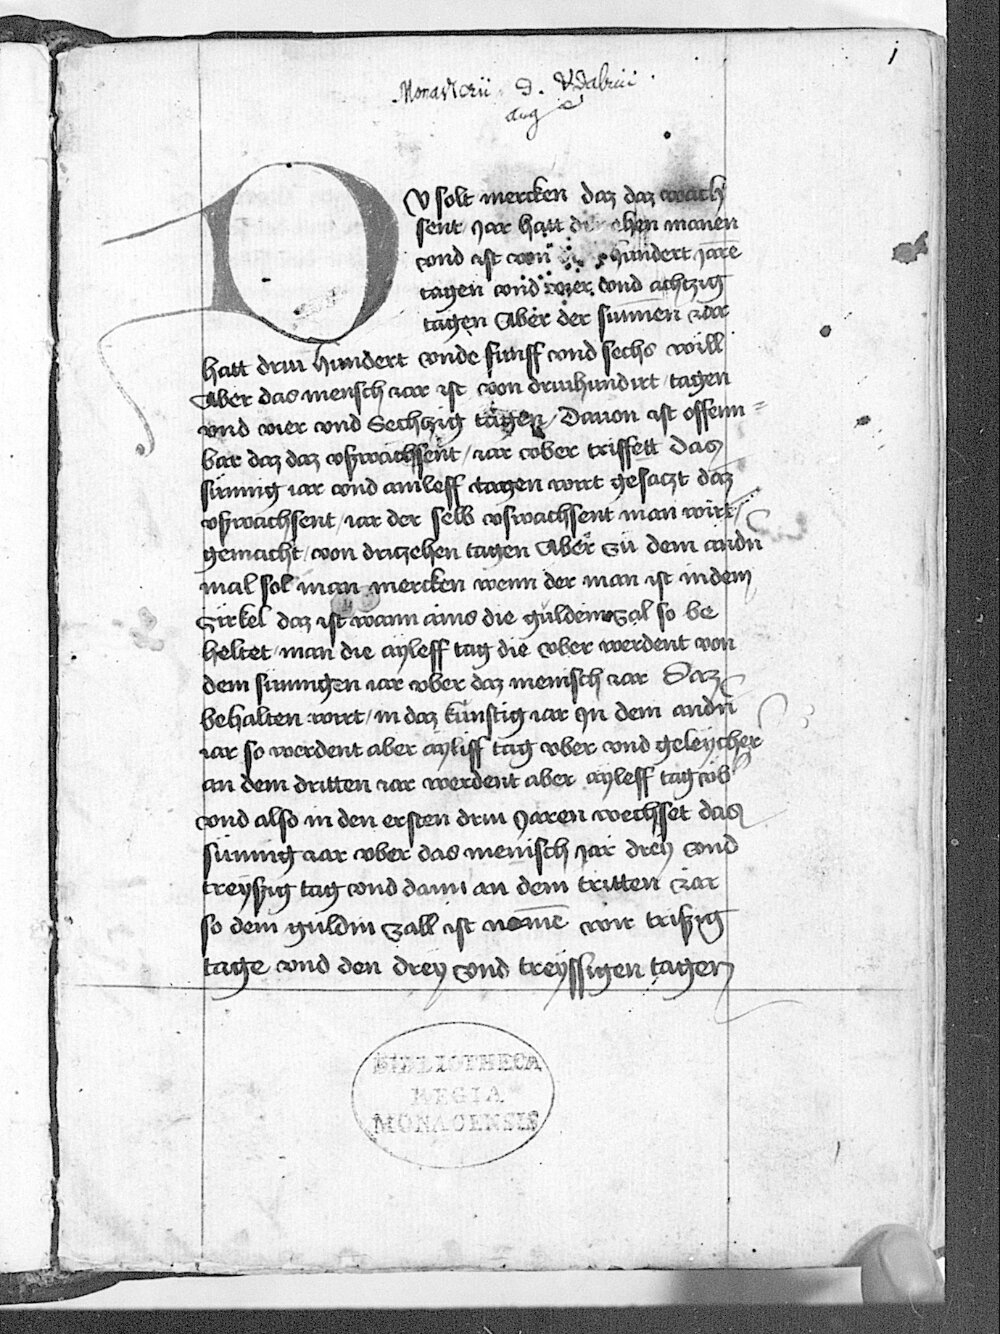 1
Monasterii S. Vdalrici
Aug
DV solt mercken daz daz wach
sent jar hatt drizehen manen
vnd ist von hundert jare
tagen vnd vier vnd achtzig
tagen Aber der sunnen Jar
hatt driu hundert vnde funff vnd sechs will
Aber das mensch iar ist von driuhundirt tagen
vnd vier vnd Sechtzig tagen / Dauon ist offenn=
bar daz daz vszwachsent / iar vber triffett Das
sinnig iar vnd ainleff tagen wirt gesaczt daz
vszwachsent / iar der selb vswachsent man wirt /
gemacht / von drizehen tagen Aber zu dem andn
mal sol man mercken wenn der man ist indem
zirkel daz ist wann ains die guldin zal so be
heltet / man die ayleff tag die vber werdent von
dem sunnigen iar vber daz menisch iar Daz
behalten wirt / in daz kunftig iar Jn dem andn
iar so werdent aber ayliff tag vber vnd geleycher
an dem dritten iar werdent aber ayleff tag vb
vnd also in den ersten driu Jaren wechsset das
sunnig iar vber das menisch jar drey vnd
treyszig tag vnd dann an dem tritten Jar
so dem guldin zall ist nome wir triszig
tage vnd den drey vnd treyssigen tagen
BIBLIOTHECA
REGIA
MONACENSIS